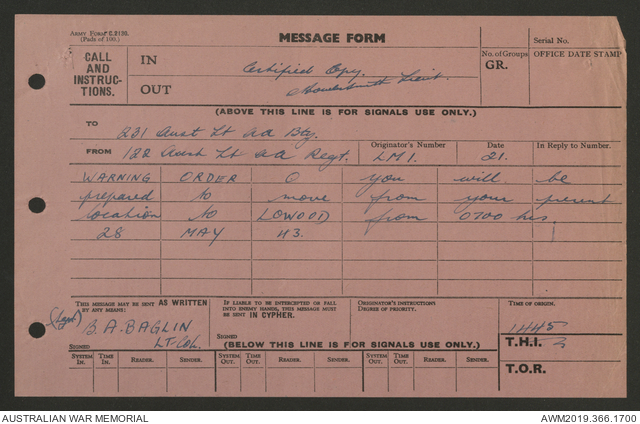 ARMY FORM C.2128.
(Pads of 100.)
MESSAGE FORM
Serial No.
CALL
AND
INSTRUC-
TIONS.
IN
OUT
Certified Copy.
Lieut.
No. of Groups
GR.
OFFICE DATE STAMP
(ABOVE THIS LINE IS FOR SIGNALS USE ONLY.)
TO
231 Aust Lt aa Bty.
FROM
122 Aust Lt aa Regt.
Originator's Number
LM1.
Date
21.
In Reply to Number.
WARNING ORDER O you will be
prepared to move from your present
location to LOWOOD from 0700 hrs
28 MAY 43.
THIS MESSAGE MAY BE SENT AS WRITTEN
BY ANY MEANS:
(Sgd)
B.A. BAGLIN
LT. COL.
SIGNED
IF LIABLE TO BE INTERCEPTED OR FALL
INTO ENEMY HANDS, THIS MESSAGE MUST
BE SENT IN CYPHER.
SIGNED
ORIGINATOR'S INSTRUCTIONS
DEGREE OF PRIORITY.
TIME OF ORIGIN.
1445
T.H.I.
T.O.R.
(BELOW THIS LINE IS FOR SIGNALS USE ONLY.)
SYSTEM IN. TIME IN. READER. SENDER. SYSTEM OUT. TIME OUT. READER. SENDER. SYSTEM OUT. TIME OUT. READER. SENDER.
AUSTRALIAN WAR MEMORIAL
AWM2019.366.1700